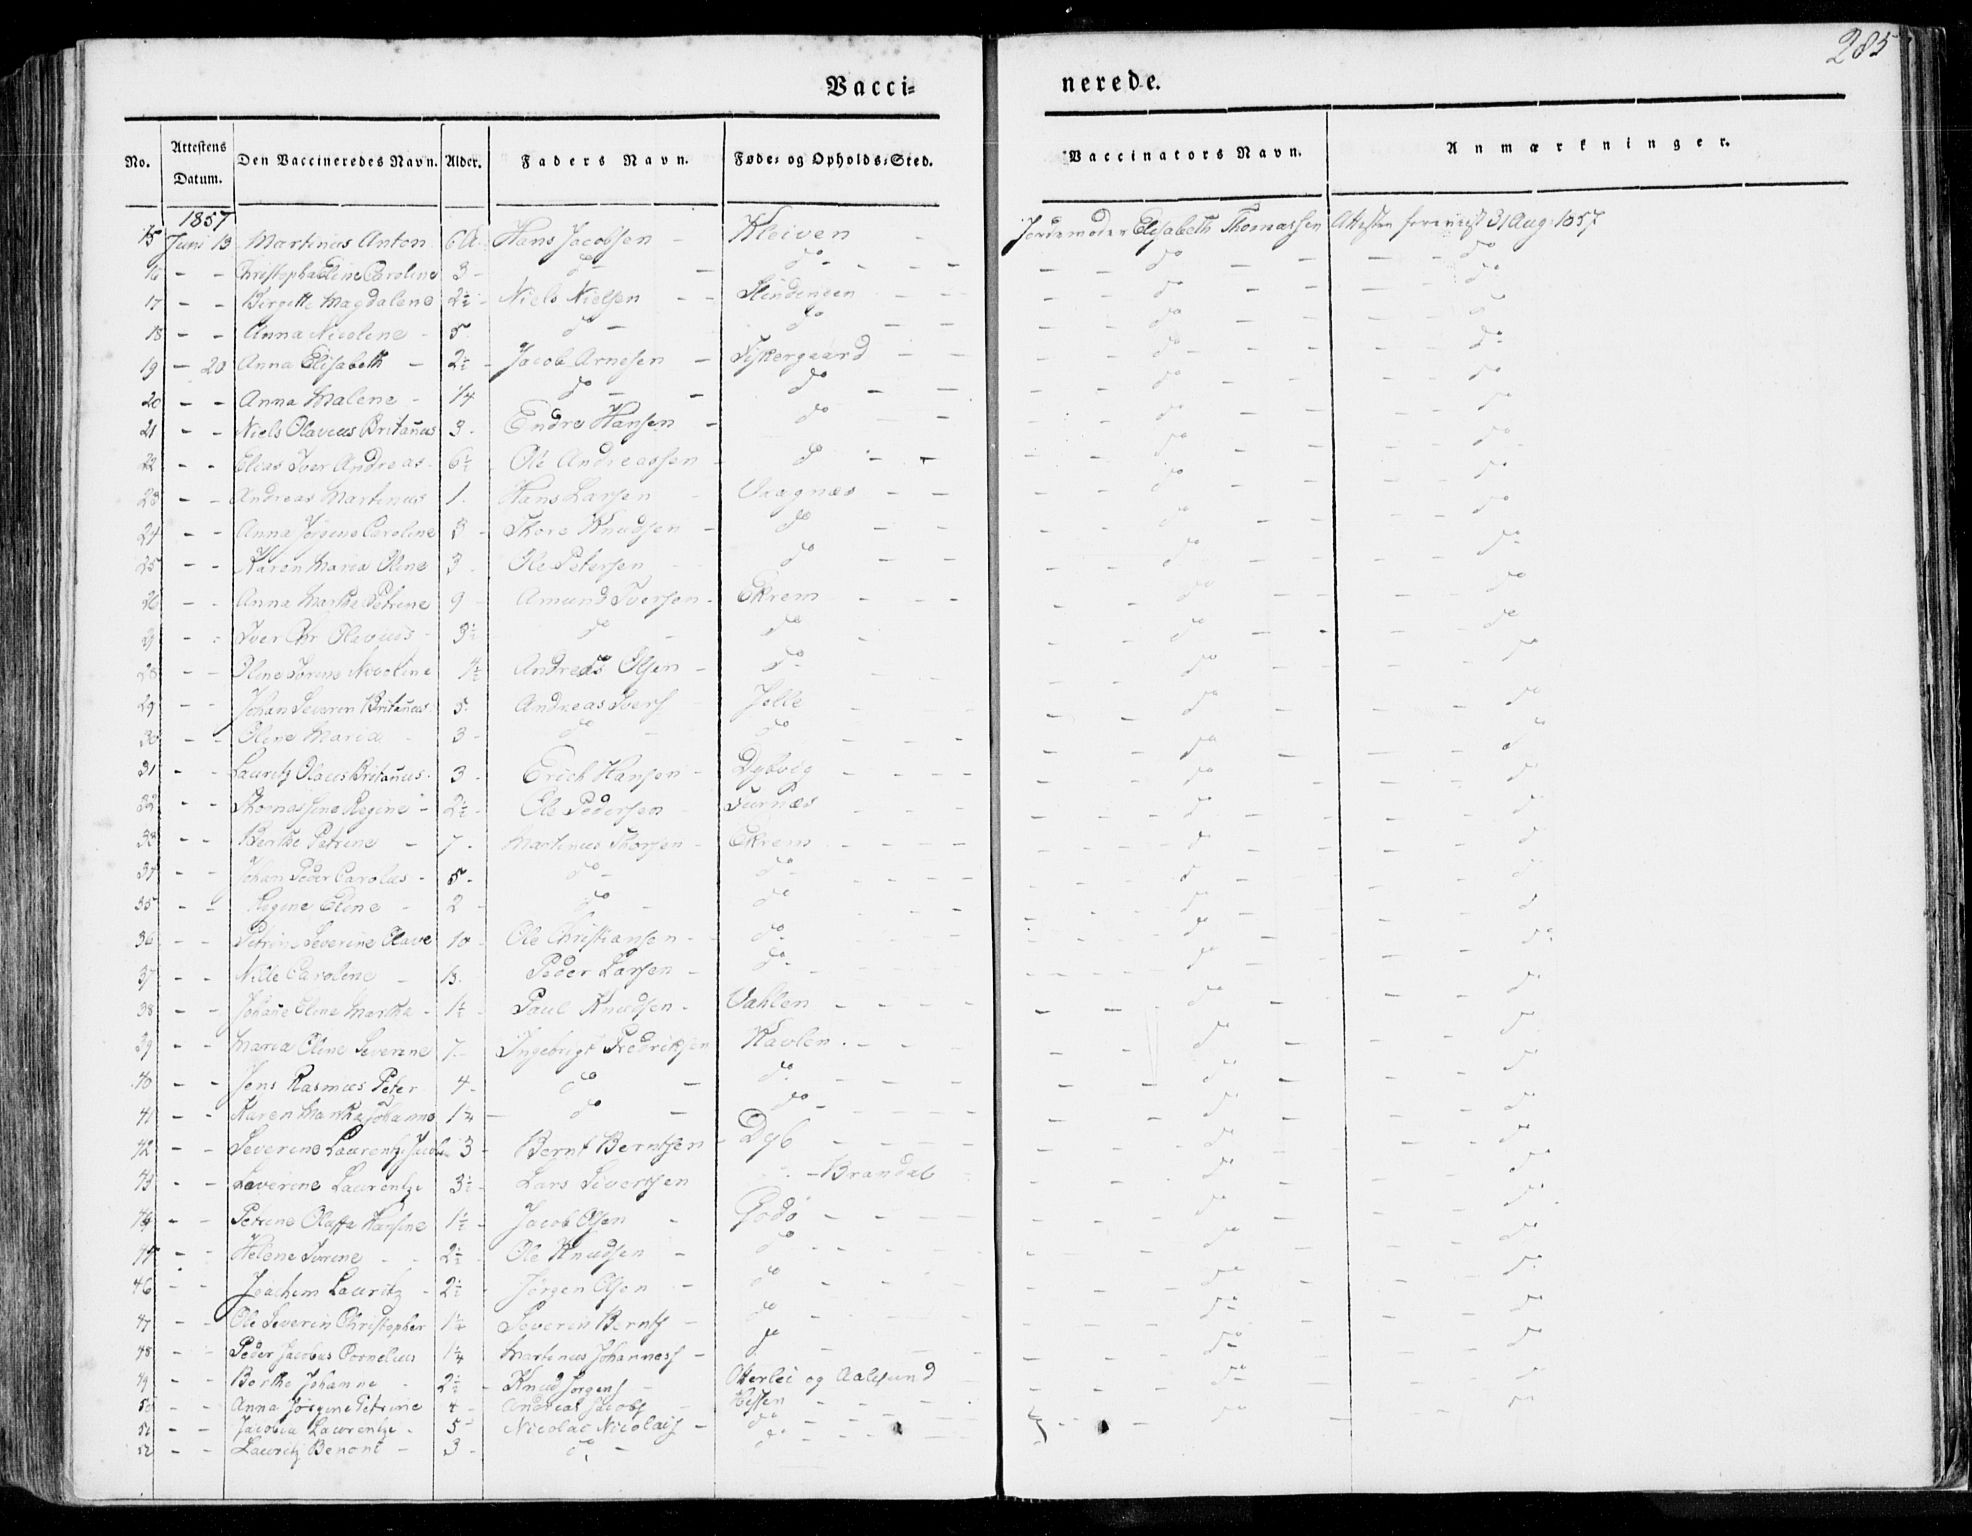 285
Vacci= nerede.
No. Attestens Datum. Den Vaccineredes Navn. Alder. Faders Navn. Føde= og Opholds=Sted. Vaccinators Navn. Anmærkninger.
1857
15 Juni 13 Martinus Anton 6 A. Hans Jacobsen - Kleiven - Jordemoder Elisabeth Thomassen Attesten foreviist 31 Aug. 1857
16 - - Eline Caroline 3 - do - do - do - do
17 - - Birgitte Magdalene 2½ - Niels Nielsen - - - do - do
18 - - Anna Nicoline - 5 do - do - do - do
19 - 20 Anna Elisabeth - 2½ - Jacob Arnesen - Fiskergaard - - do - do
20 - - Anna Malene - 1/4 do - do - do - do
21 - - Niels Olavus Britanus 3 - Endre Hansen - do - do - do
22 - - Elias Iver Andreas - 6½ Ole Andreassen - do - do - do
23 - - Andreas Martinus 1 - Hans Larsen - Vaagnæs - - do - do
24 - - Anna Caroline 3 - Thore Knudsen - do - do - do
25 - - Karen Maria Oline 3 - Ole Petersen - do - do - do
26 - - Anna Marthe Petrine 9 - Amund Iversen - Ekrem - do - do
- - Iver Chr. Olavus - 3½ do - do - do - do
28 - - Oline Nicoline Andreas Olsen - do - do - do
29 - - Johan Severin Britanus 5 - Andreas Ivers - do - do
30 - - Oline Maria - 3 - do - do - do - do
31 - - Lauritz Olaus Britanus - 3 - Erich Hansen - Dybvig - do - do
32 - - Thomassine Regine - 2½ - Ole Pedersen - Turnæs - do - do
33 - - Berthe Petrine - 7 - Martinus Thorsen - Ekrem - do - do
34 - - Johan Peder Carolus - 5 - do - do - do - do
35 - - Regine Eline - 2 - do - do - do - do
36 - - Petrine Severine Olave 10 - Ole Christiansen - do - do - do
37 - - Nille Caroline - Peder Larsen - do - do - do
38 - - Johane Eline Marthe - 1½ - Paul Knudsen - Vahlen - do - do
39 - - Maria Oline Severine 7 - Ingebrigt Fredriksen - do - do
40 - - Jens Rasmus Peter 4 - do - do - do - do
41 - - Karen Martha Johanne - do - do - do - do
42 - - Severine Laurentze 3 - Bernt Berntsen - Dyb - do - do
43 - - Severine Laurentze 3½ - Lars Sivertsen - Brandal - do - do
44 - - Petrine Olaffa Hansine 1½ - Jacob Olsen - Godø - do - do
45 - - Helene - 2½ - Ole Knudsen - do - do - do
46 - - Joachem Lauritz - 2½ - Jørgen Olsen - do - do - do
47 - - Ole Severin Christopher Severin Bernts - do - do - do
48 - - Peder Jacobus Cornelius 1¼ Martinus Johanness - do - do - do
49 - - Berthe Johanne - 2½ - Knud Jørgens - og Aalesund - do - do
50 - - Anna Jørgine Petrine 4 - Andreas Jacobs - Hessen - do - do
51 - - Jacobia Laurentze - 5 - Nicolai Nicolais - do
52 - - Lauritz Benoni - 3 - do - do